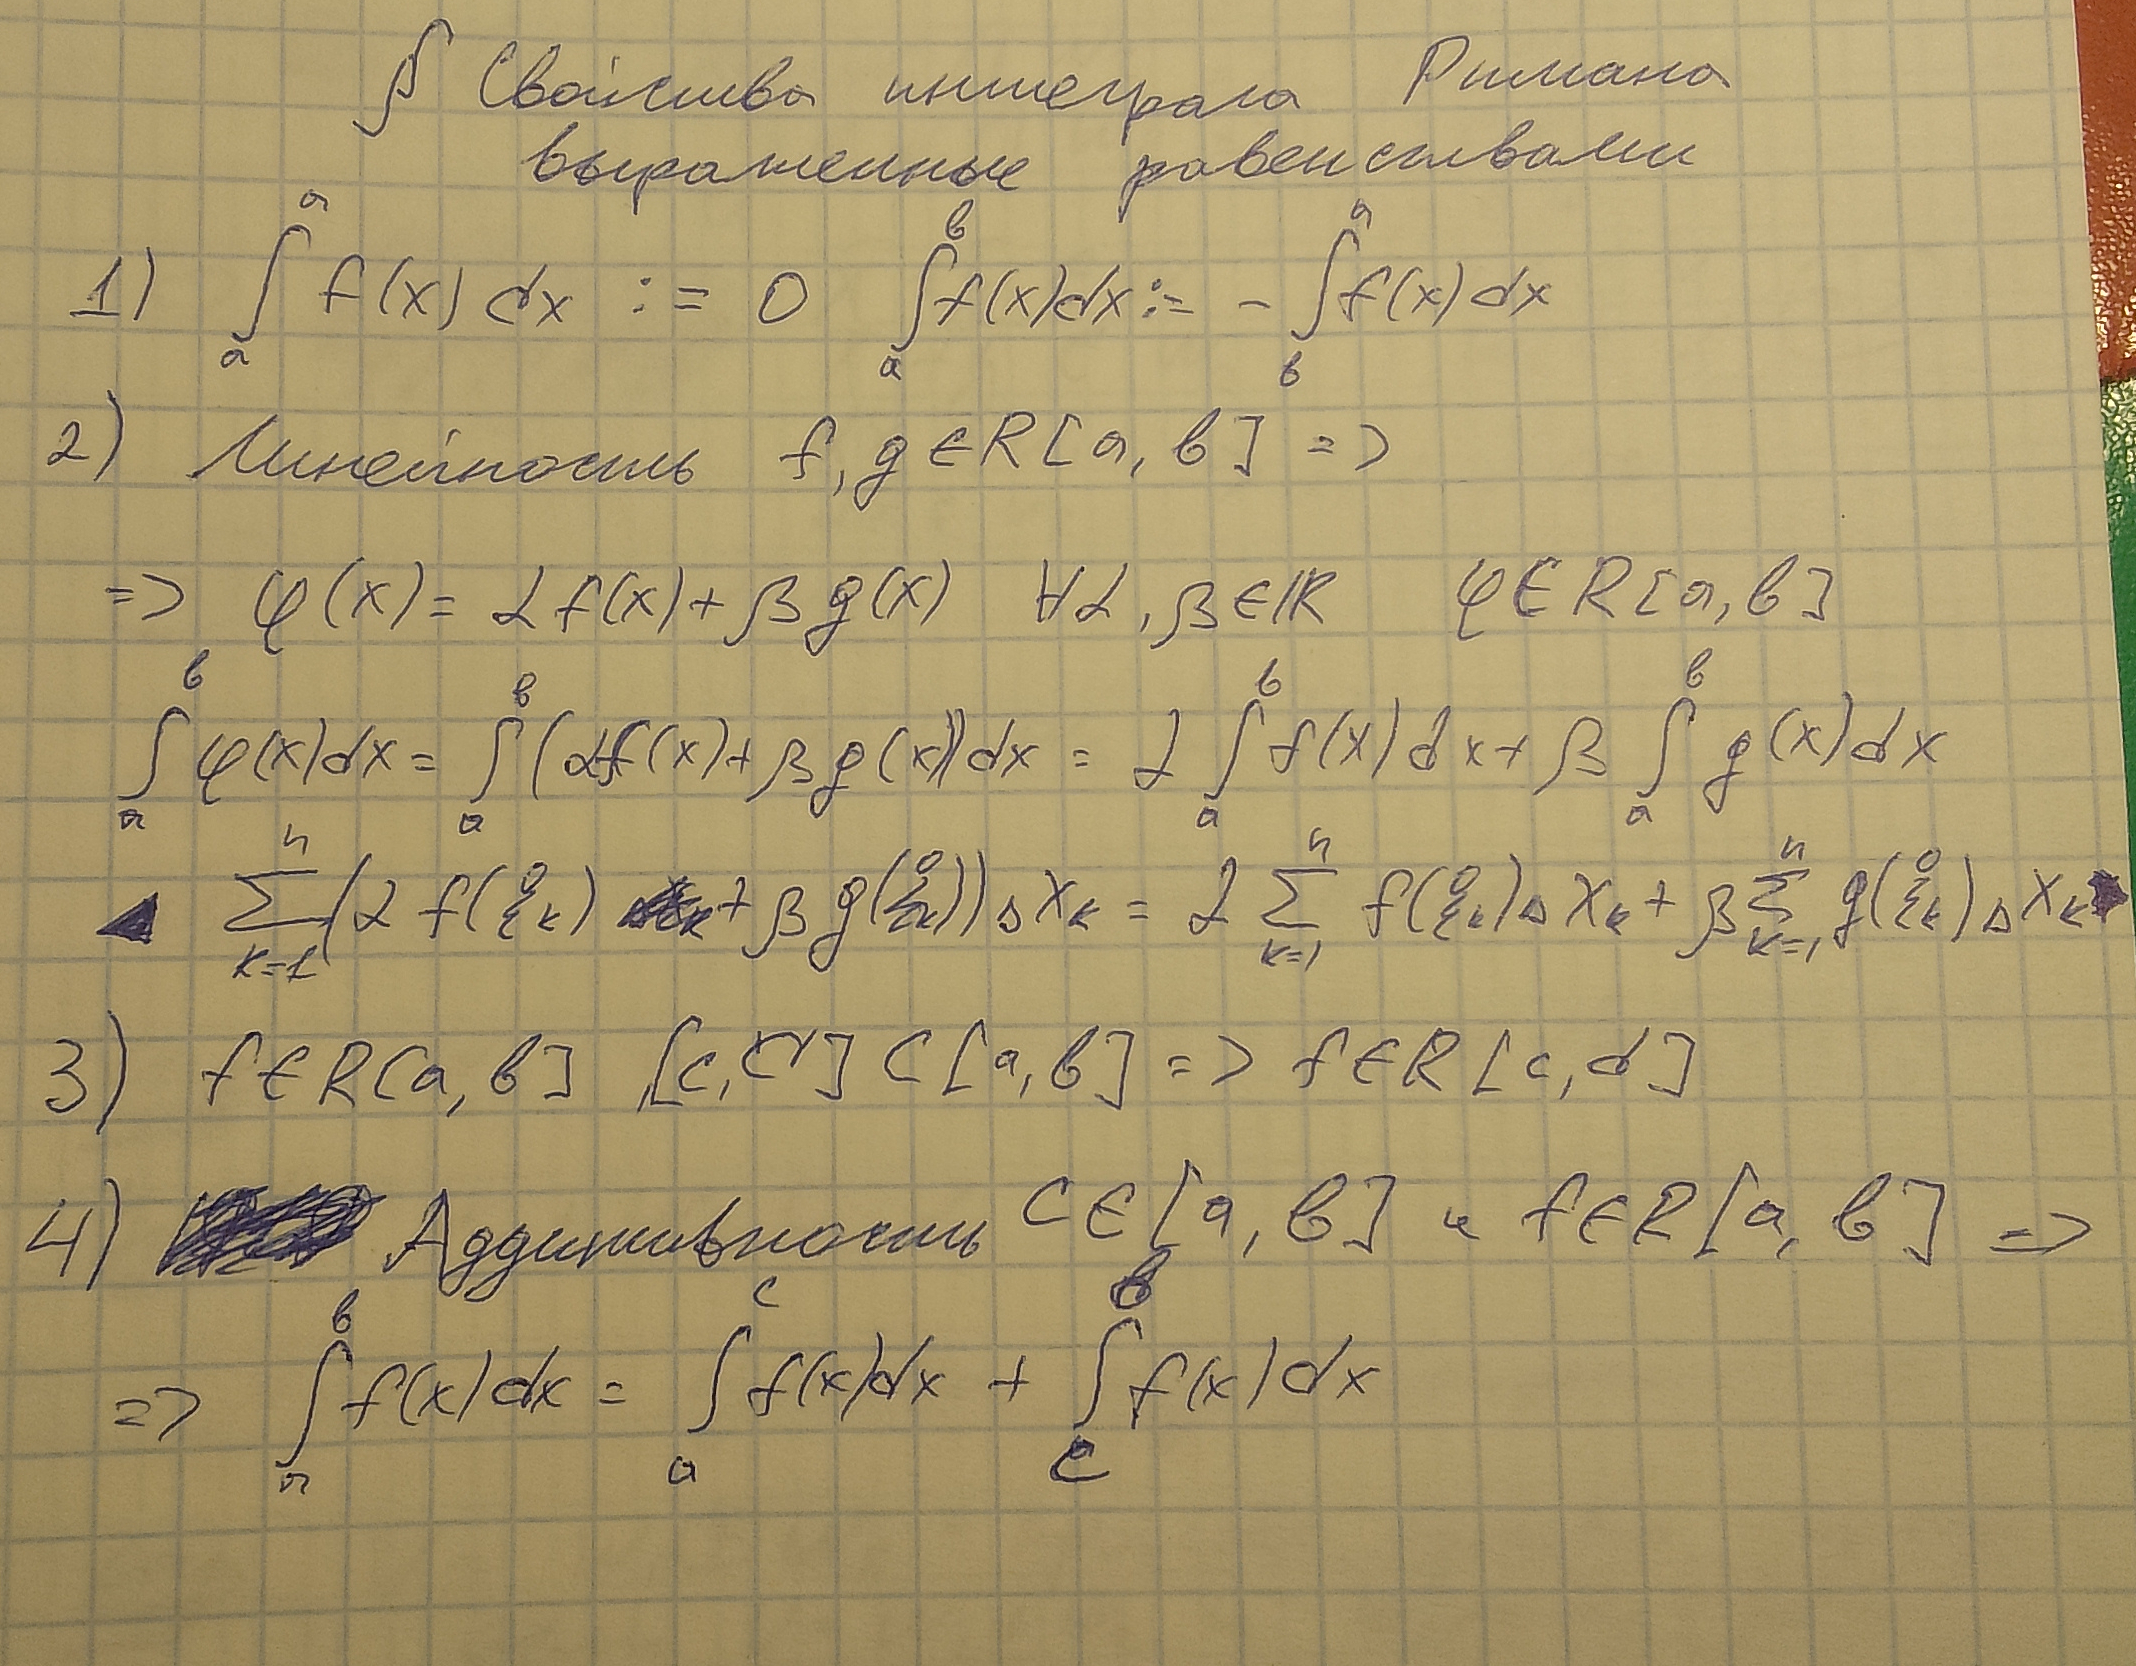 § Свойства интеграла Римана
выраженные равенствами
1) ∫ₐᵃ f(x) dx := 0 ∫ₐᵇ f(x)dx := - ∫ᵇₐ f(x) dx
2) Линейность f, g ∈ R[a, b] =>
=> φ(x) = αf(x) + βg(x) ∀α, β ∈ ℝ φ ∈ R[a, b]
∫ₐᵇ φ(x)dx = ∫ₐᵇ (αf(x) + βg(x))dx = α ∫ₐᵇ f(x)dx + β ∫ₐᵇ g(x)dx
◀ ∑ₖ₌₁ⁿ (α f(ξₖ) + β g(ξₖ)) Δxₖ = α ∑ₖ₌₁ⁿ f(ξₖ)Δxₖ + β ∑ₖ₌₁ⁿ g(ξₖ)Δxₖ ▶
3) f ∈ R[a, b] [c, d] ⊂ [a, b] => f ∈ R[c, d]
4) Аддитивность c ∈ [a, b] и f ∈ R[a, b] =>
=> ∫ₐᵇ f(x)dx = ∫ₐᶜ f(x)dx + ∫_c^b f(x)dx